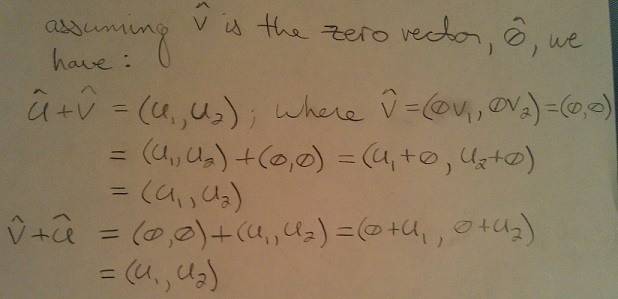 assuming v̂ is the zero vector, ô, we
have:
û+v̂ = (u₁, u₂); where v̂=(0v₁, 0v₂)=(0,0)
= (u₁, u₂) + (0,0) = (u₁+0, u₂+0)
= (u₁, u₂)
v̂+û = (0,0)+(u₁, u₂)=(0+u₁, 0+u₂)
= (u₁, u₂)